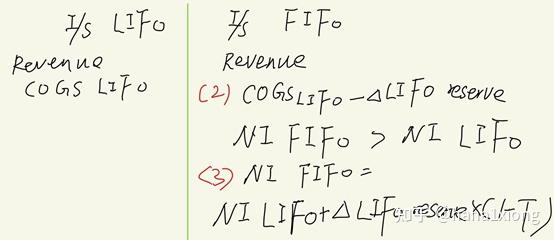 I/s LIFO
Revenue
COGS LIFO
I/s FIFO
Revenue
(2) COGS LIFO - △LIFO reserve
NI FIFO > NI LIFO
(3) NI FIFO =
NI LIFO + △LIFO reserve x (1-T)
知乎 @nana1xiong